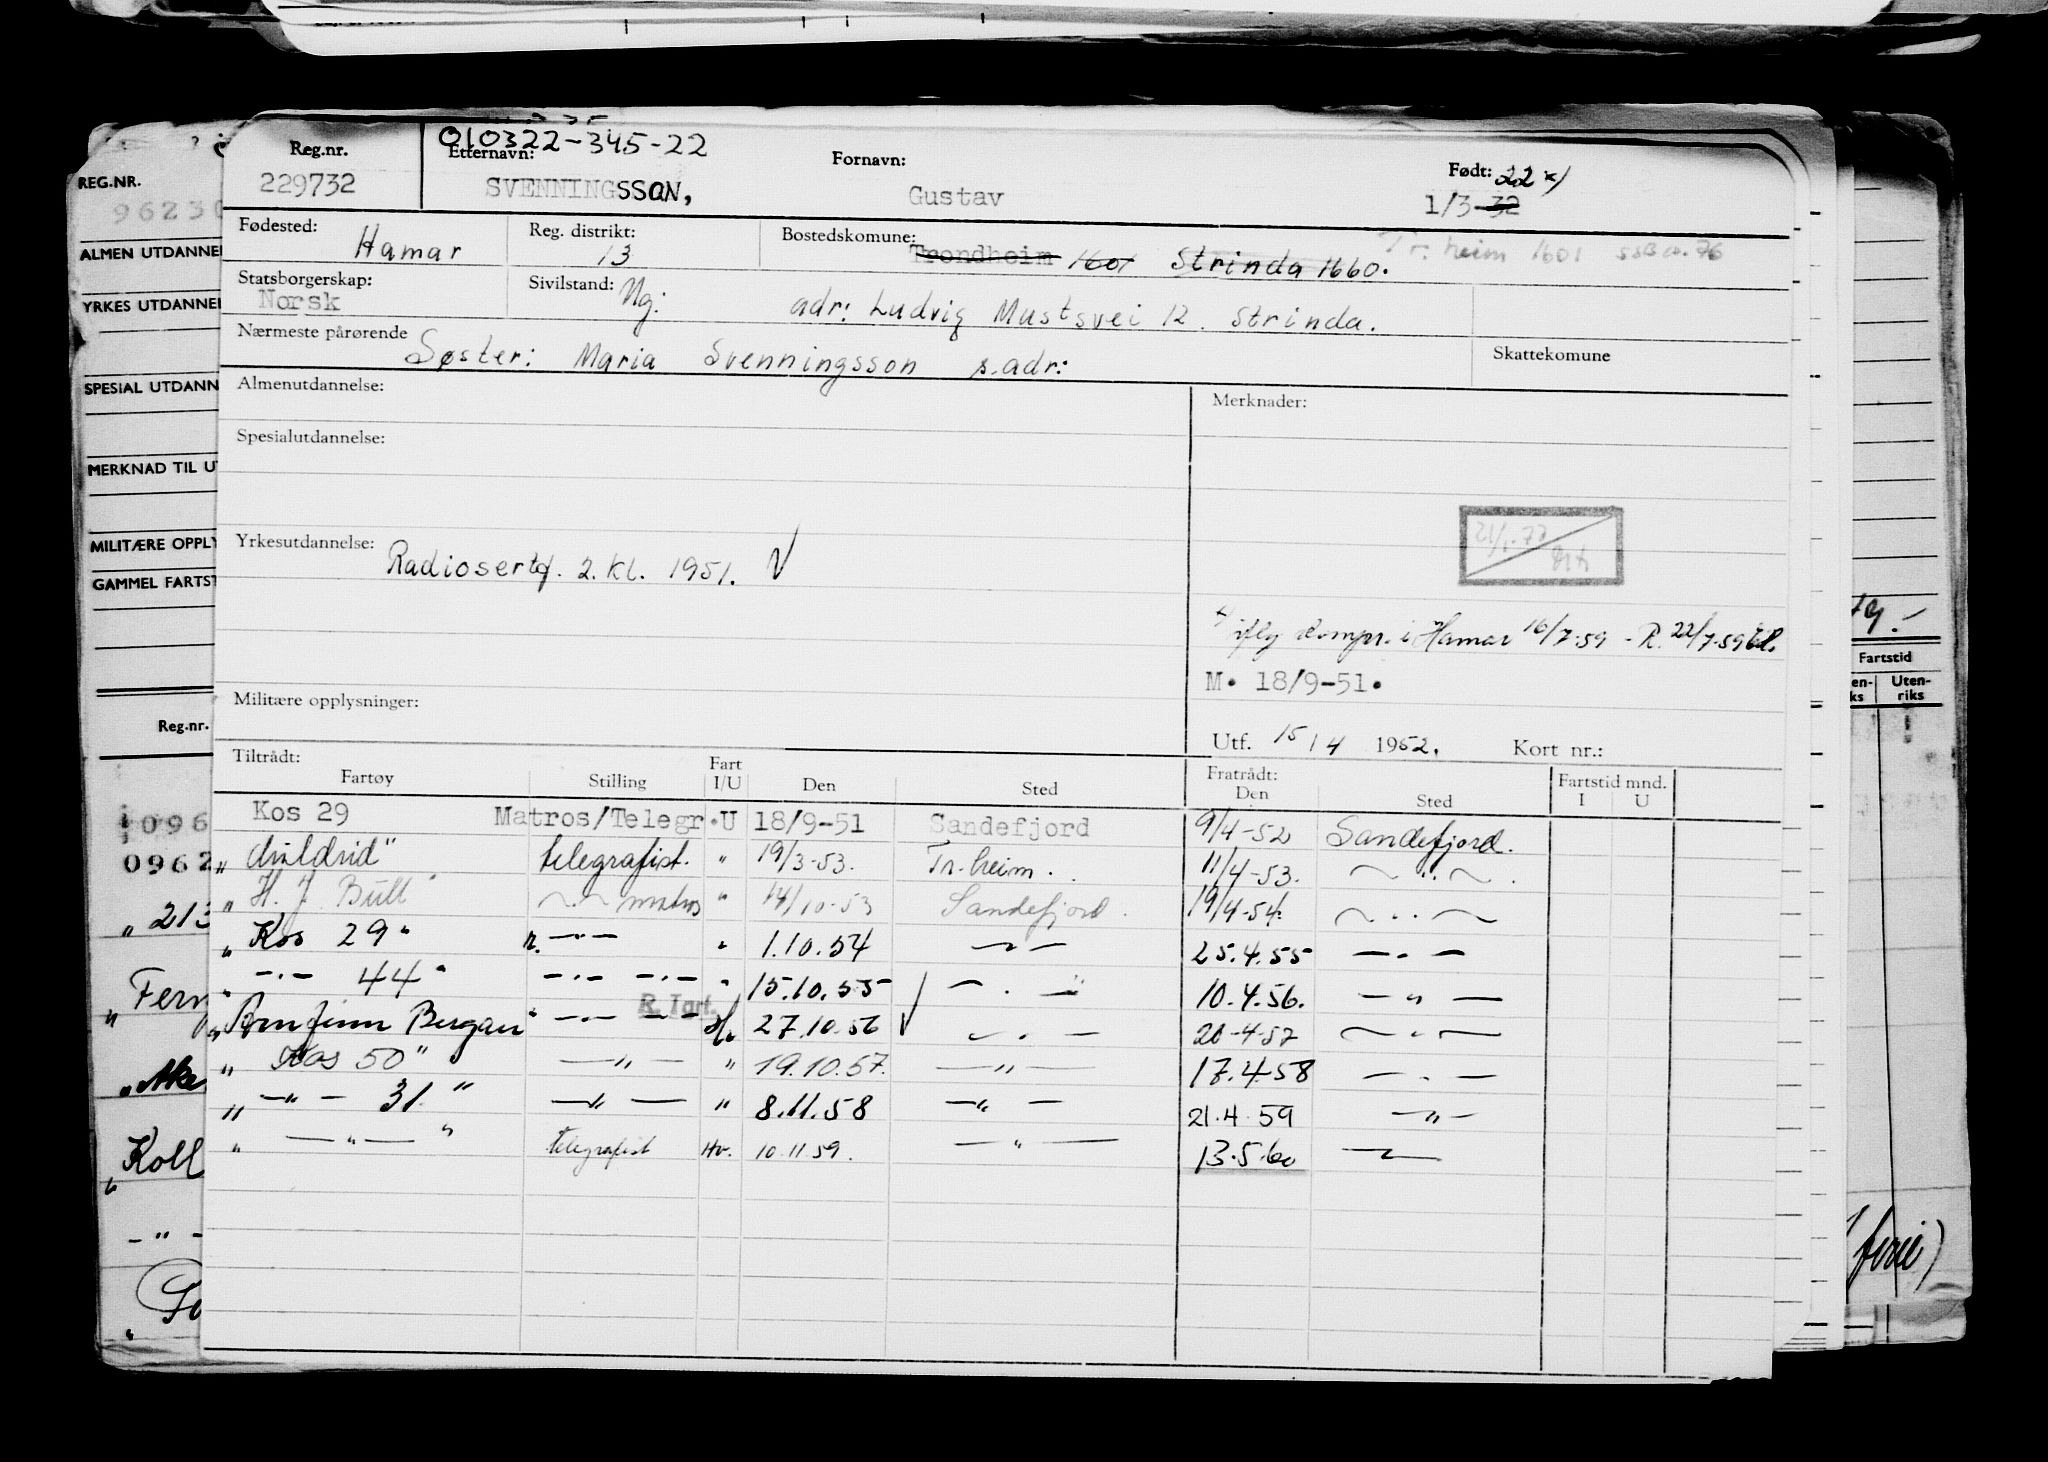 010322-345-22
Reg.nr. Etternavn: Fornavn: Født: 22 x/
229732 SVENNINGSSON, Gustav 1/3-32
Fødested: Hamar Reg. distrikt: 13 Bostedskommune: Trondheim 1601 Strinda 1660. Tr.heim 1601
Statsborgerskap: Norsk Sivilstand: Ug. adr: Ludvig Mustsvei 12. Strinda.
Nærmeste pårørende Søster: Maria Svenningsson s.adr: Skattekomune
Almenutdannelse: Merknader:
Spesialutdannelse:
Yrkesutdannelse: Radiosertf. 2. kl. 1951. V
x/ iflg kompr. i Hamar 16/7-59 - R. 22/7-59
M. 18/9-51.
Militære opplysninger:
Utf. 15/4 1952. Kort nr.:
Tiltrådt: Fratrådt:
Fartøy Stilling Fart I/U Den Sted Den Sted Fartstid mnd. I U
Kos 29 Matros/Telegr. U 18/9-51 Sandefjord 9/4-52 Sandefjord.
telegrafist. " 19/3-53. Tr.heim. 11/4-53. ~ .. ~
" H. J. Bull " ~.~ matros " 14/10-53 Sandefjord. 19/4-54. ~ .. ~
" Kos 29 " —.— " 1.10.54 —"— 25.4.55 —.—
" —.— 44 " —.— —.— " 15.10.55 — . — 10.4.56. — " —
" Arnfinn Bergan " —.— R.Tgf. 27.10.56 — . — 20-4-57 ~ . ~
" Kos 50 " —"— " 19.10.57. —"— 17.4.58 — . —
" —"— 31 " —"— " 8.11.58 —"— 21.4.59 —"—
" —"— " telegrafist Hv. 10.11.59. —"— 13.5.60 —"—
REG.NR.
ALMEN UTDANNE
YRKES UTDANNE
SPESIAL UTDANN
MERKNAD TIL U
MILITÆRE OPPLY
GAMMEL FARTST
Reg.nr.
096
0962
" 213
" Fern
" Koll
Fartstid
Uten-
riks